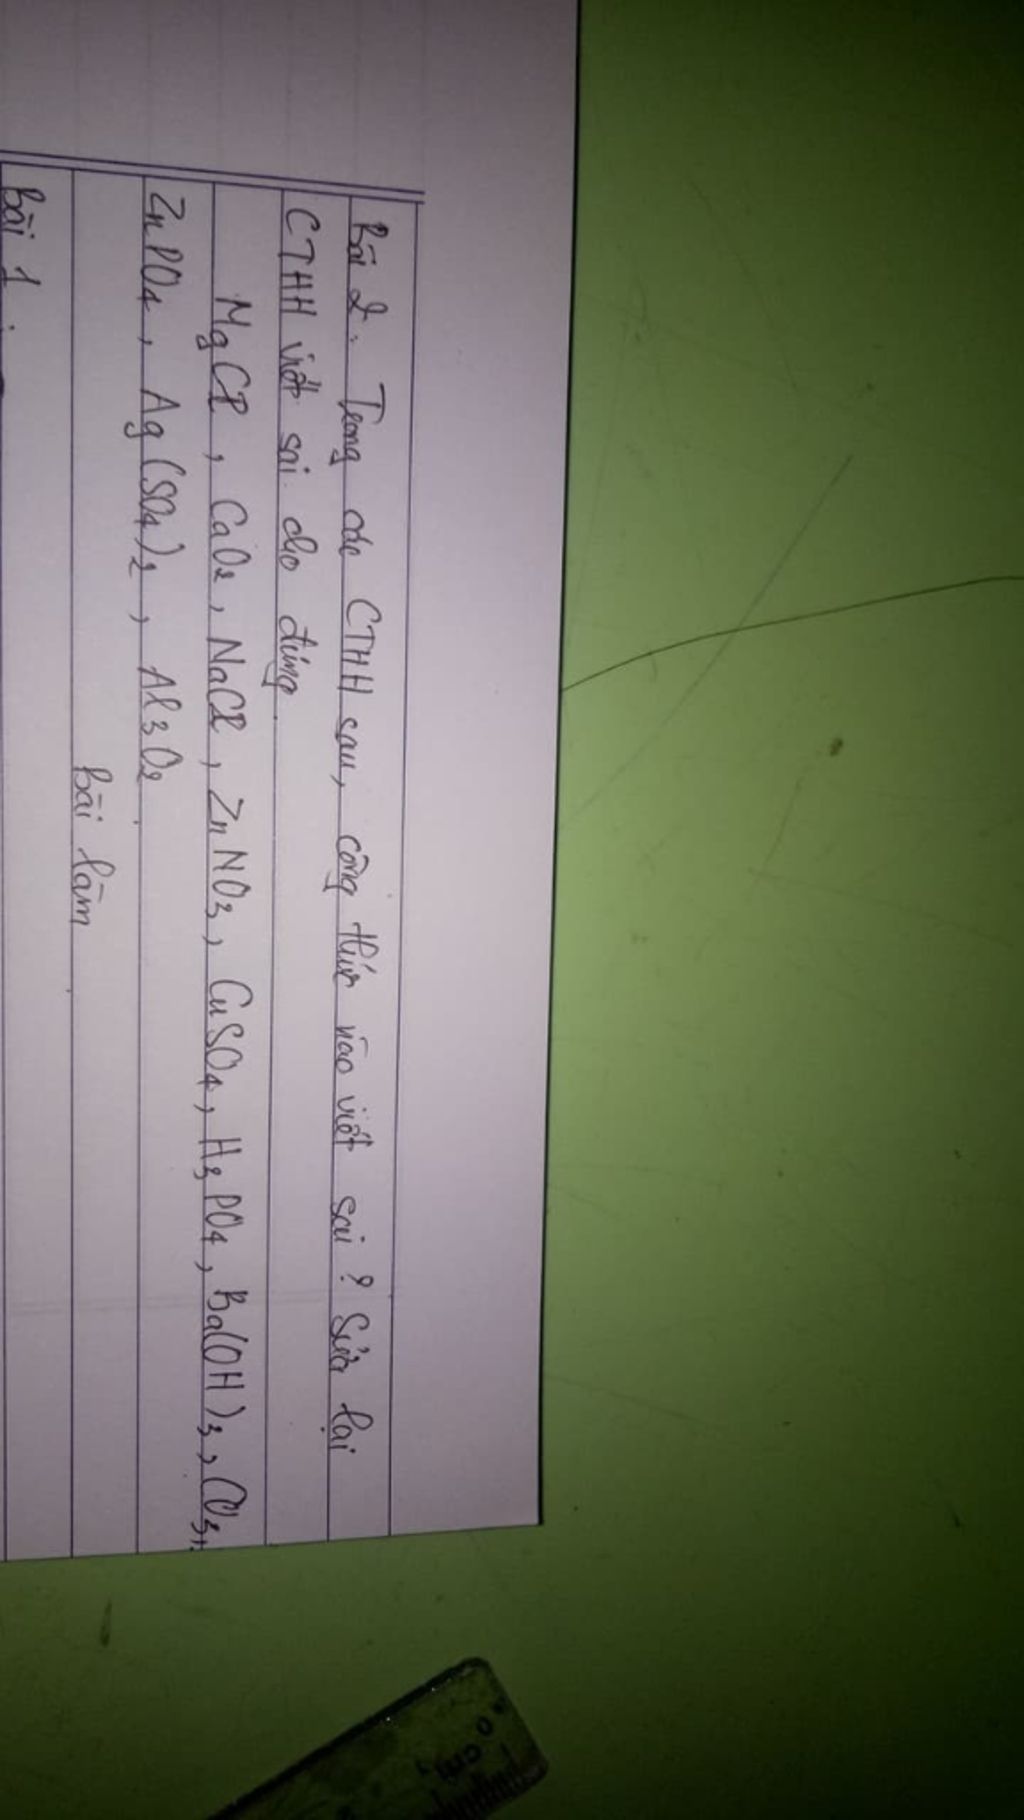 Bài 2. Trong các CTHH sau, công thức nào viết sai? Sửa lại
CTHH viết sai cho đúng
MgCl, CaO₂, NaCl, ZnNO₃, CuSO₄, H₃PO₄, Ba(OH)₃, CO₃,
ZnPO₄, Ag(SO₄)₂, Al₃O₂
Bài làm
Bài 1:
0 cm 1